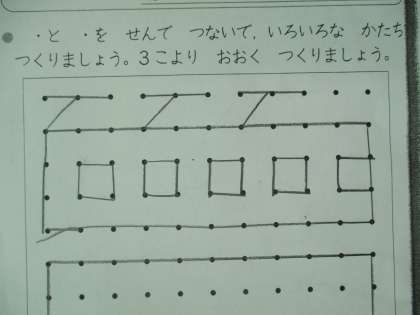 ・と ・を せんで つないで, いろいろな かたち
つくりましょう。3こより おおく つくりましょう。